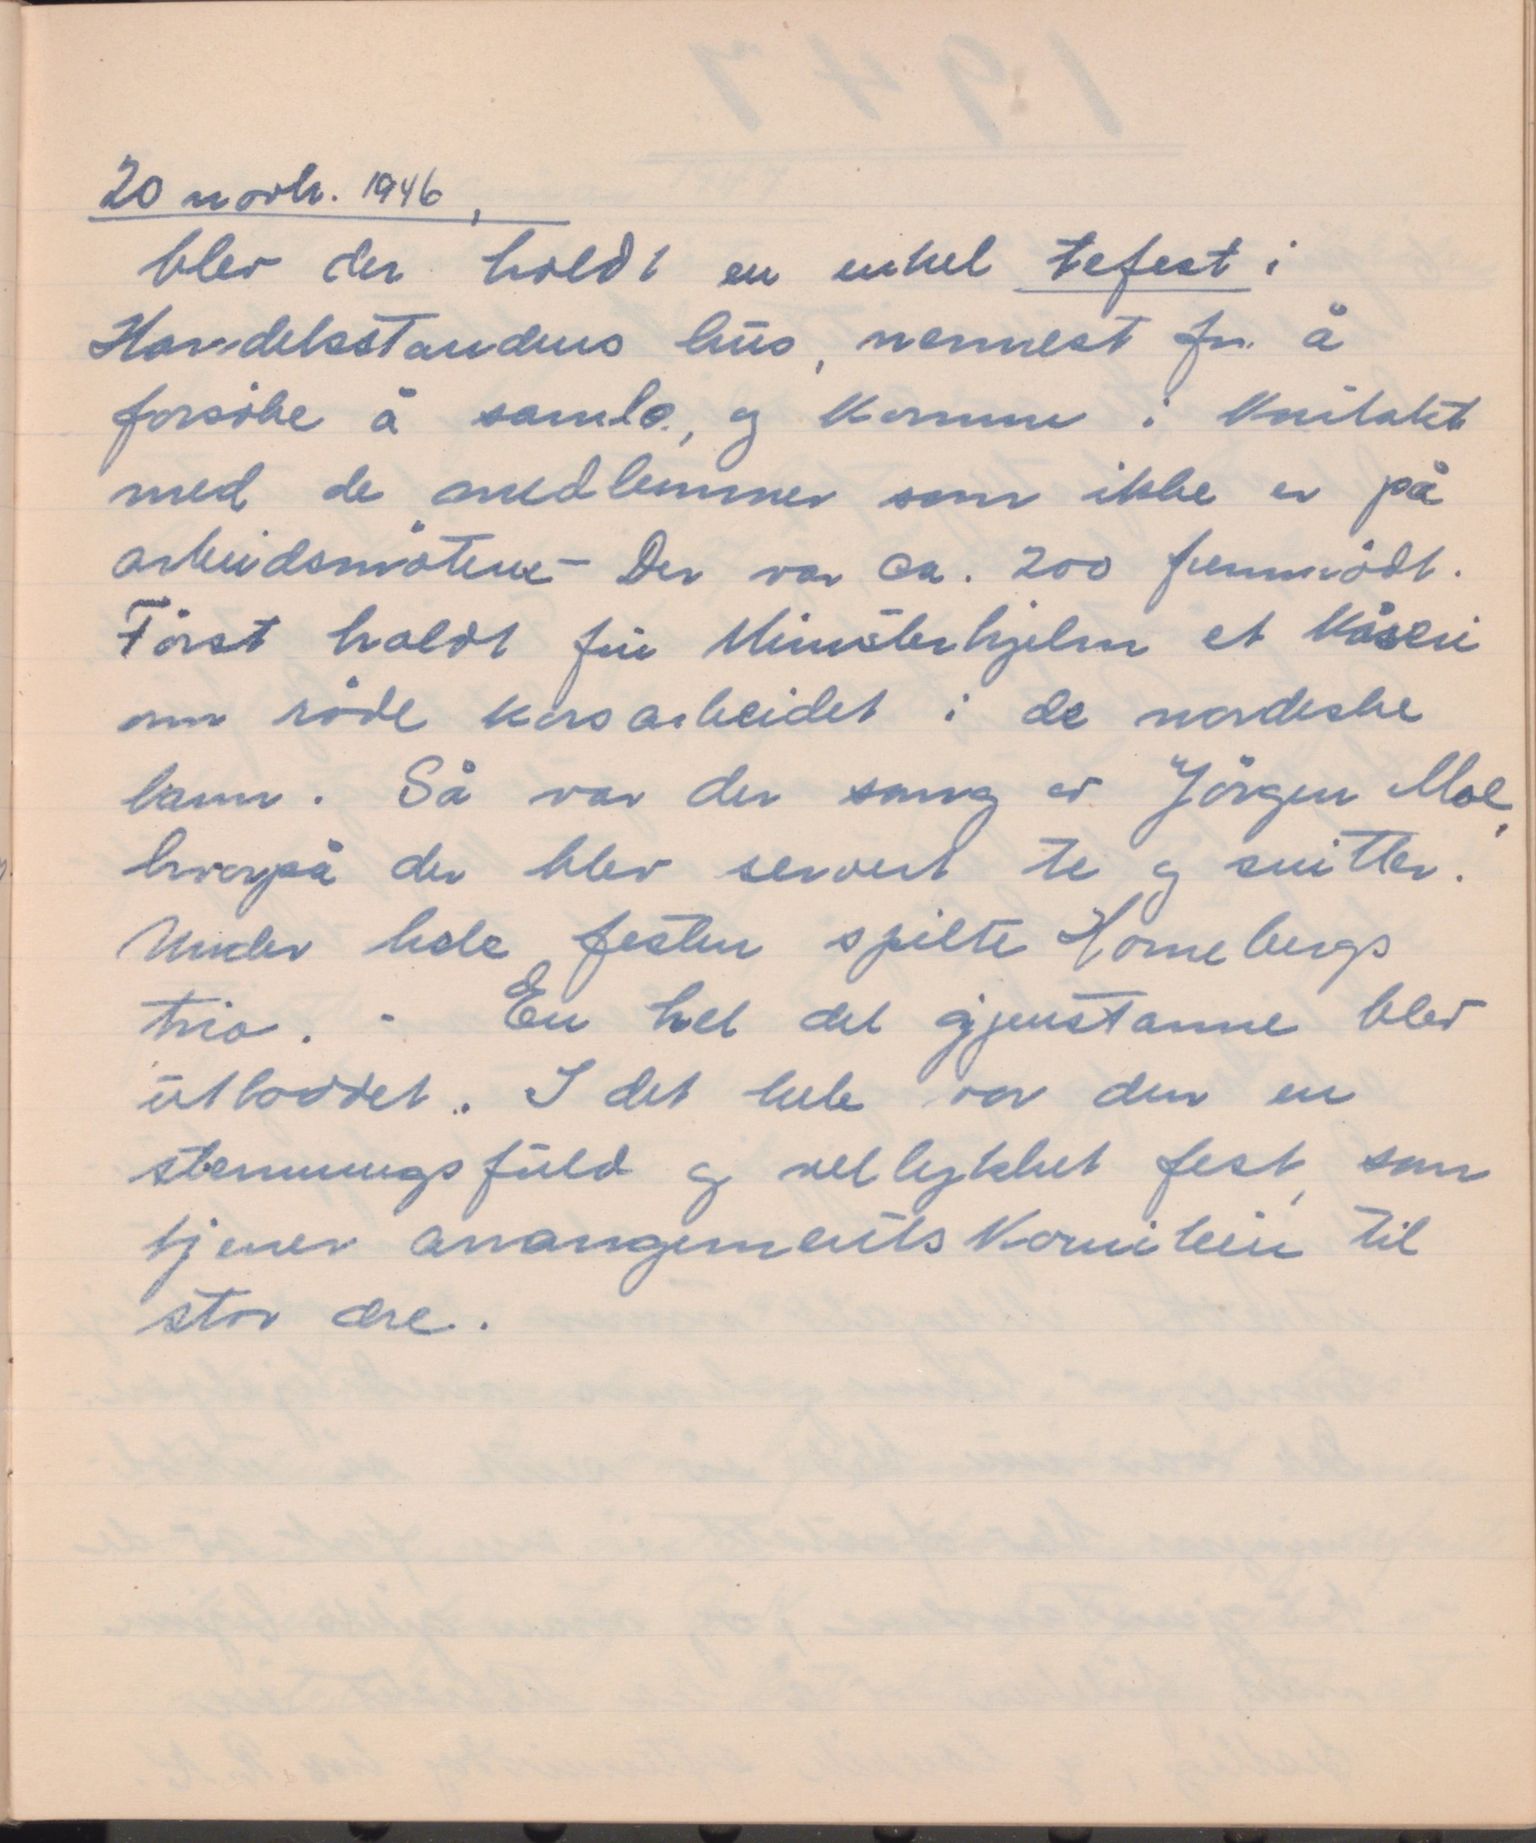 20 novbr. 1946,
blev der holdt en enkel tefest i
Handelsstandens hus, nermest for å
forsöke å samle, og komme i kontakt
med de medlemmer som ikke er på
arbeidsmötene – Der var ca. 200 fremmödt.
Först holdt fru Münsterhjelm et kåseri
om röde korsarbeidet i de nordiske
lann. Så var der sang av Jörgen Moe,
hvorpå der blev servert te og snitter.
Under hele festen spilte Hornebergs
trio. - En hel del gjenstanne blev
utloddet. I det hele var den en
stemningsfuld og vellykket fest, som
tjener arrangementskomiteen til
stor ære.